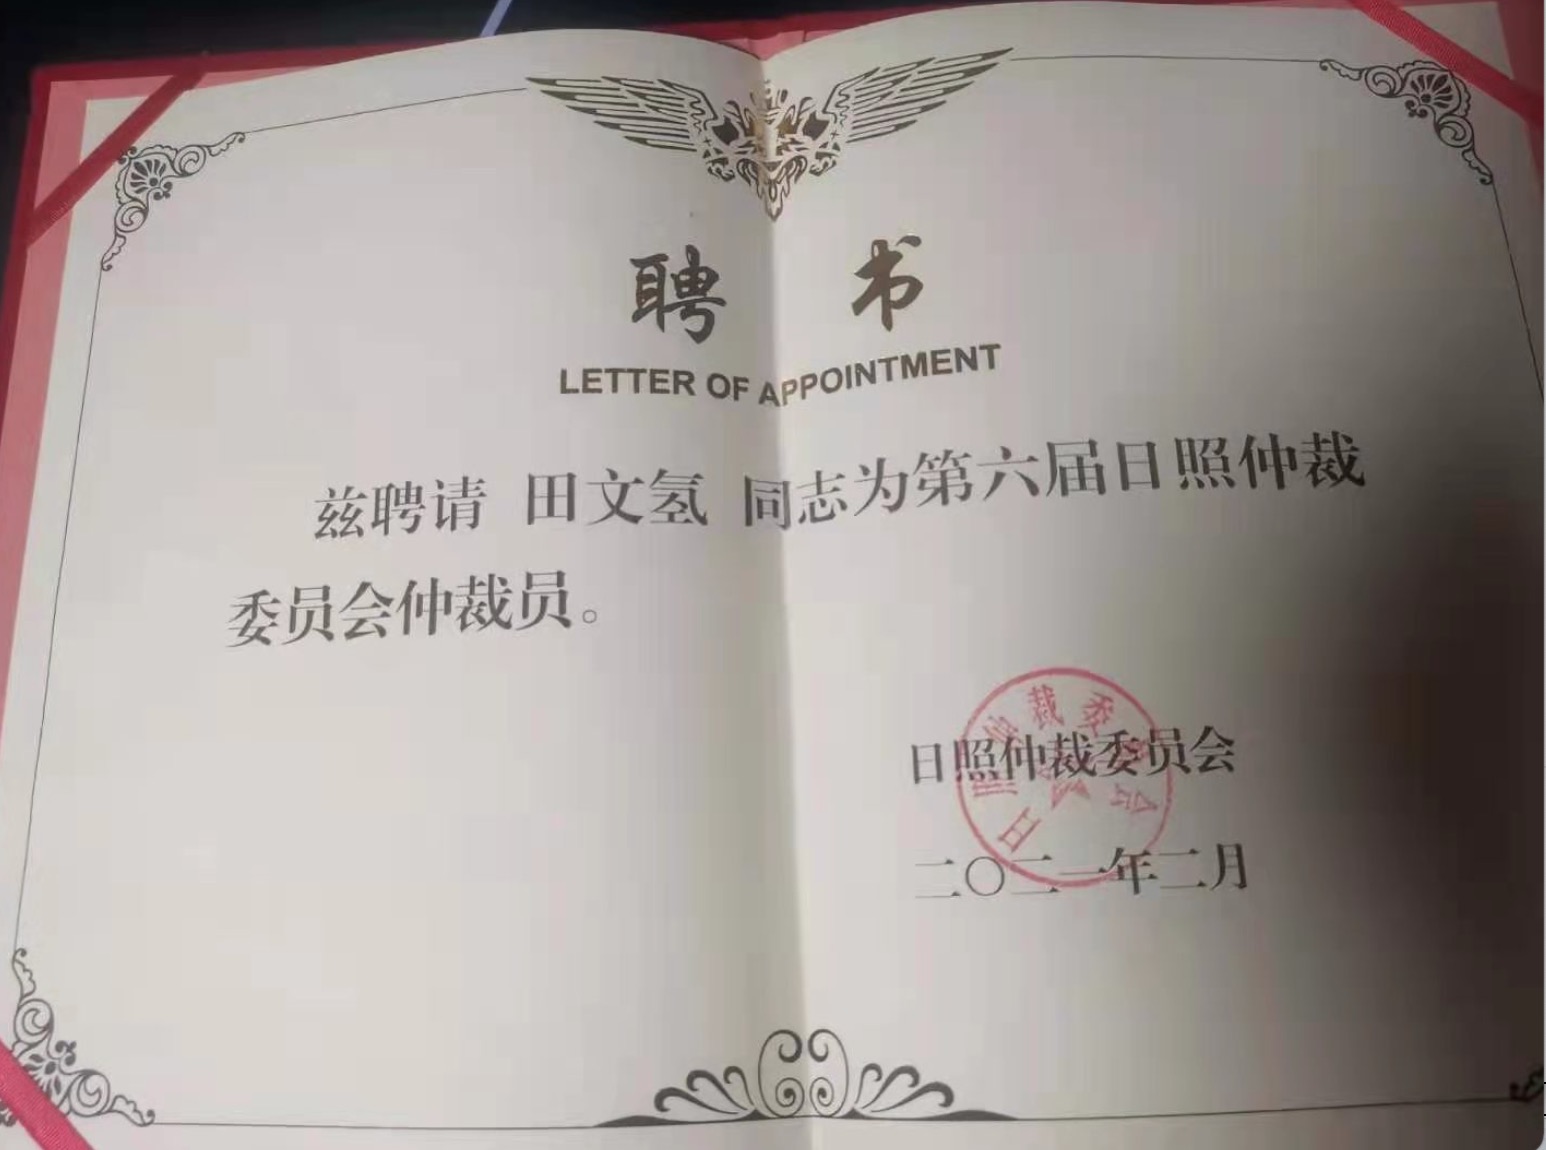 聘 书
LETTER OF APPOINTMENT
兹聘请 田文氢 同志为第六届日照仲裁
委员会仲裁员。
日照仲裁委员会
日照仲裁委员会
二〇二一年二月